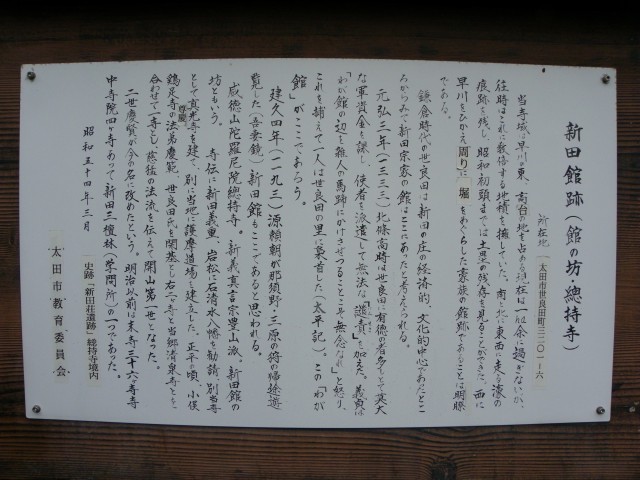 新田館跡(館の坊・總持寺)
所在地 太田市世良田町三二〇一-六
当寺域、早川の東、高台の地を占める現在は一町余に過ぎないが、
往時はこれに数倍する地積を擁していた。南・北・東西に走る濠の
痕跡を残し、昭和初頭までは土塁の残存を見ることができた。西に
早川をひかえ周りに堀をめぐらした豪族の館跡であることは明瞭
である。
鎌倉時代の世良田は新田の庄の経済的、文化的中心であったとこ
ろからみて新田宗家の館はここにあったと考えられる。
元弘三年(一三三三)北條高時は世良田に有徳の者多しとして莫大
な軍資金を課し、使者を派遣して無法な「譴責」を加えた。義貞は
「わが館の辺を雑人の馬蹄にかけさせつることこそ無念なれ」と怒り、
これを捕えて一人は世良田の里に梟首した(太平記)。この「わが
館」がここであろう。
建久四年(一一九三)源頼朝が那須野・三原の狩の帰途遊
覧した(吾妻鏡)新田館もここであると思われる。
威徳山陀羅尼院總持寺。新義真言宗豊山派。新田館の
坊ともいう。
寺伝に新田義重、岩松に石清水八幡を勧請、別当寺
として真光寺を建て、別に当地に護摩道場を建立した。正平の頃、小俣
鶏足寺の法弟慶範、世良田氏を開基として右二寺と当郷清泉寺とを
尊慶
合わせて一寺とし、慈猛の法流を伝えて開山第一世となった。
二世慶賢が今の名に改めたという。明治以前は末寺三十六ヶ寺寺
中寺院四ヶ寺あって新田三檀林(学問所)の一つであった。
昭和五十四年三月
史跡「新田荘遺跡」總持寺境内
太田市教育委員会